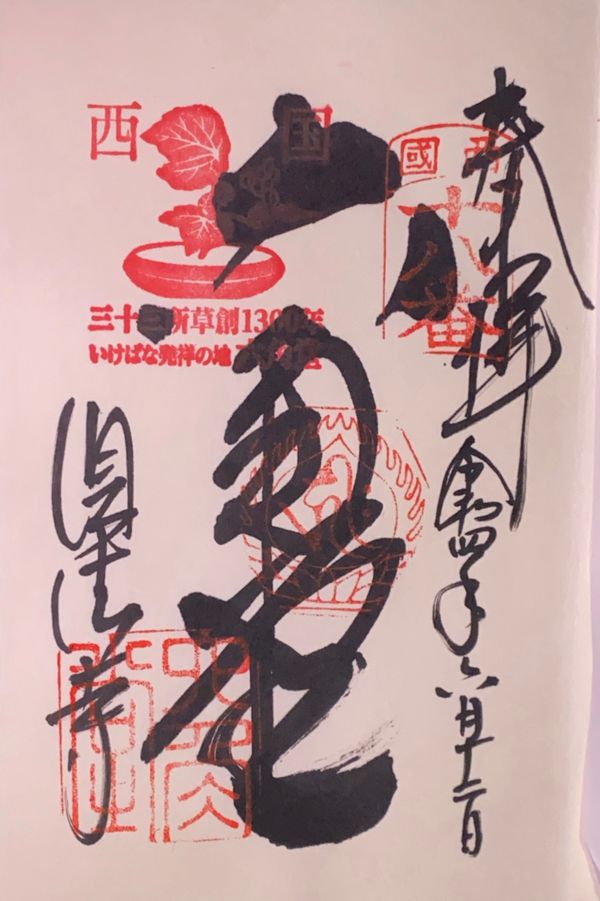 奉拝
令和四年六月十二日
西國
十八番
西国
三十三所草創1300年
いけばな発祥の地 六角堂
六角堂
頂法寺